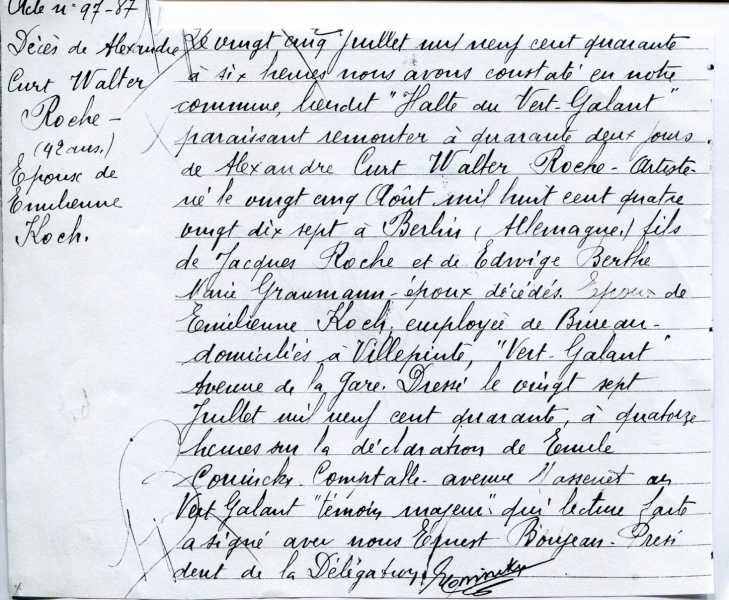 Acte n° 97-87
Décès de Alexandre
Curt Walter
Roche-
(42 ans.)
Epoux de
Emilienne
Koch.
Le vingt cinq Juillet mil neuf cent quarante
à six heures nous avons constaté en notre
commune, lieudit "Halte du Vert-Galant"
paraissant remonter à quarante deux jours
de Alexandre Curt Walter Roche-Artiste-
né le vingt cinq Août mil huit cent quatre
vingt dix sept à Berlin (Allemagne.) fils
de Jacques Roche et de Edwige Berthe
Marie Graumann-époux décédés. Epoux de
Emilienne Koch, employée de Bureau-
domiciliés à Villepinte, "Vert-Galant"
Avenue de la Gare. Dressé le vingt sept
Juillet mil neuf cent quarante, à quatorze
heures sur la déclaration de Emile
Coninckx. Comptable- avenue Massenet au
Vert Galant "témoin majeur" qui lecture faite
a signé avec nous Ernest Boujean- Prési
dent de la Délégation. Coninckx